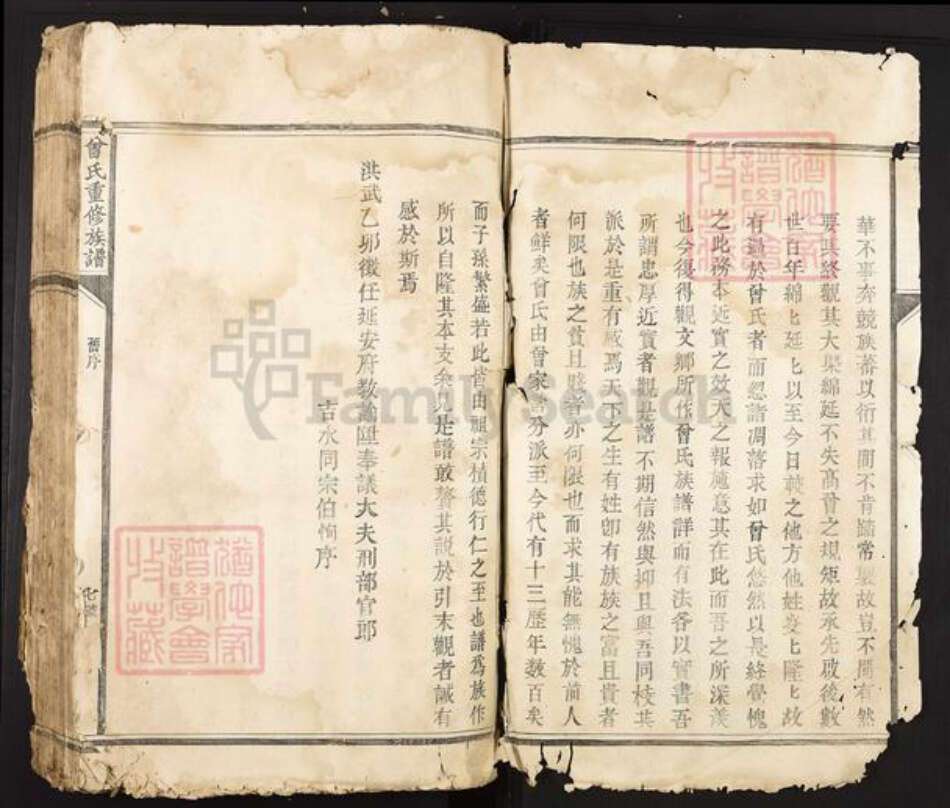 華不事奔競族蕃以衍其間不肯踰常襲故豈不間有然
要其終觀其大槩綿延不失高曾之規矩故承先啟後數
世百年綿〻延〻以至今日較之他方他姓㷀〻隆〻故
有過於曾氏者而忽諸凋落求如曾氏悠然以長終覺愧
之此務本近實之效天之報施意其在此而吾之所深羨
也今復得觀文鄉所作曾氏族譜詳而有法各以實書吾
所謂忠厚近實者觀是譜不期信然與抑且與吾同枝共
派於是重有感焉天下之生有姓卽有族族之富且貴者
何限也族之貧且賤者亦何限也而求其能無愧於前人
者鮮矣曾氏由曾家 分派至今代有十三歷年数百矣
而子孫繁盛若此皆由祖宗積德行仁之至也譜爲族作
所以自隆其本支余見是譜敢贅其説於引末觀者誠有
感於斯焉
洪武乙卯徵任延安府教諭陞奉議大夫刑部官郎
吉水同宗伯恂序
曾氏重修族譜
舊序
FamilySearch
譜學會
收藏
譜學會
收藏